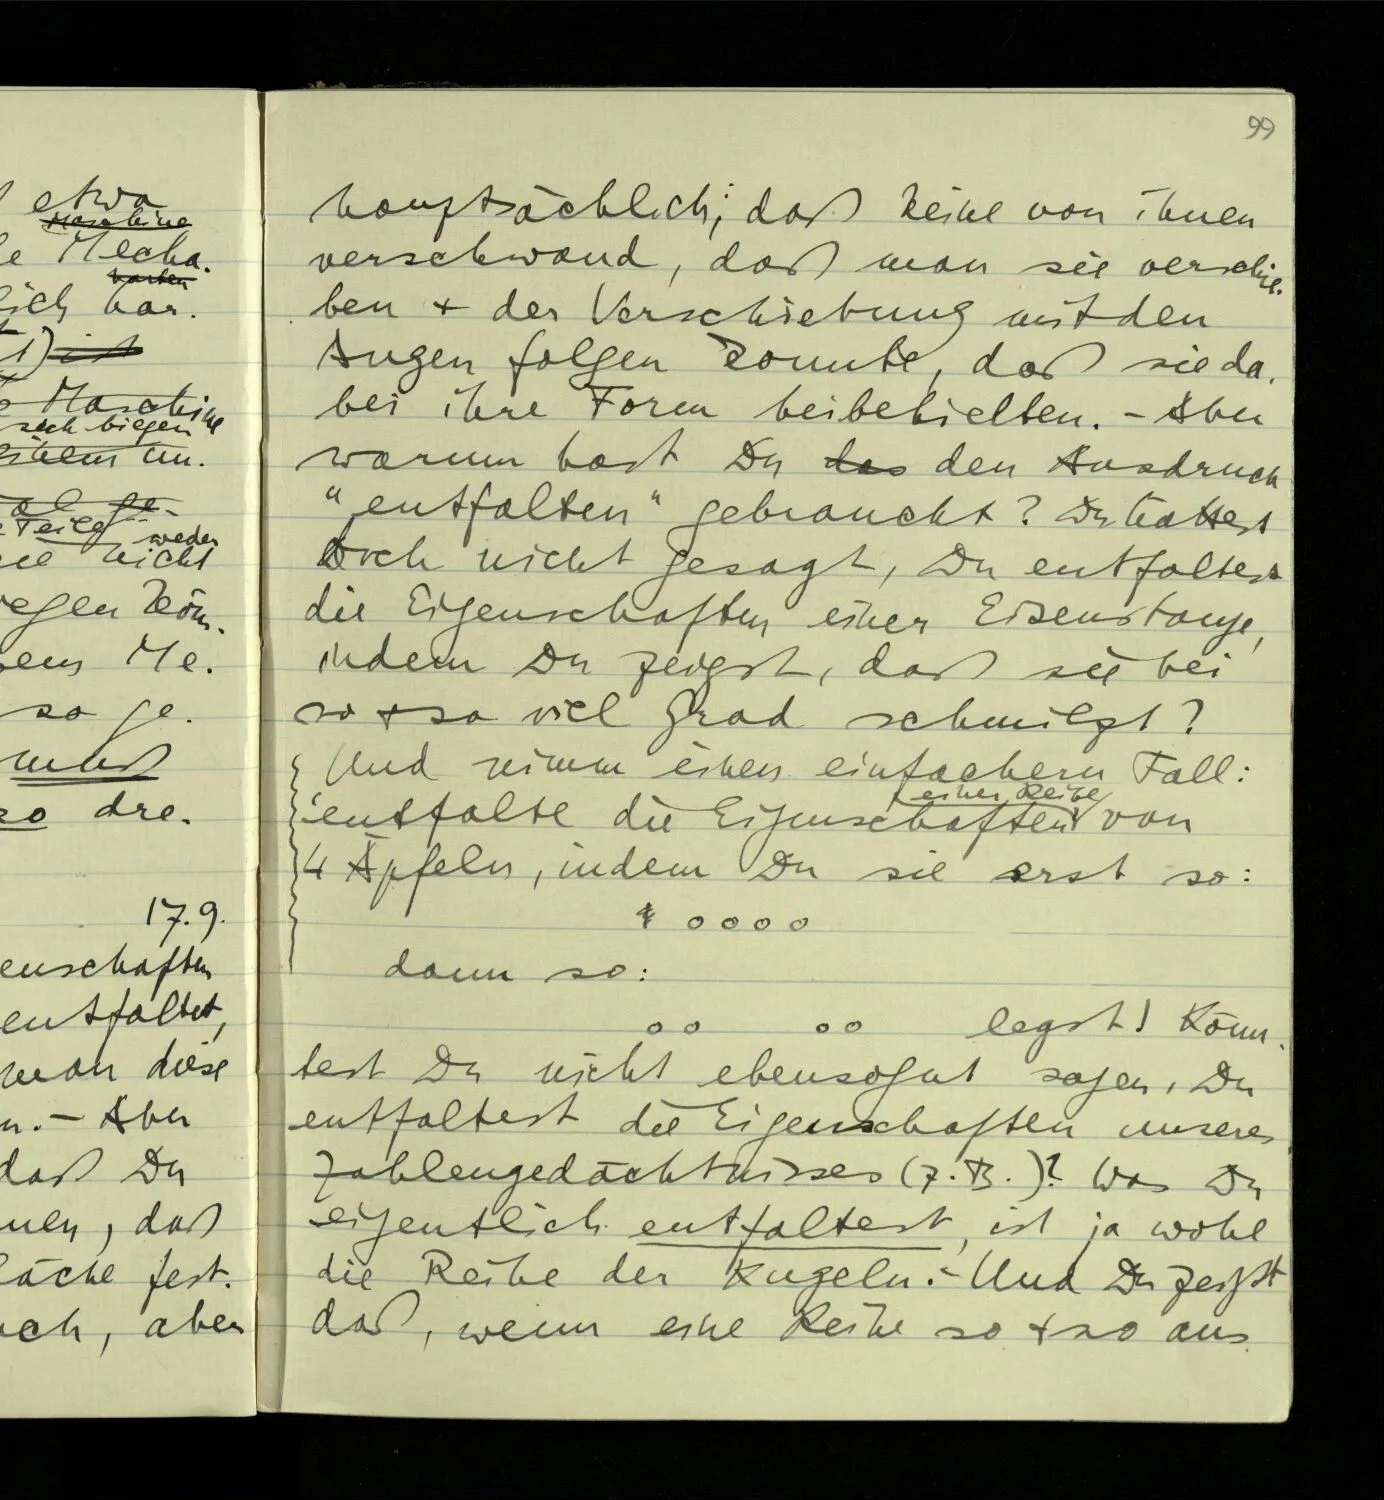 99
etwa
Maschine
Mecha-
lich har-
ist
Maschine
sich biegen
Teile weder
nicht
Me-
so ge-
muß
so dre-
17.9.
enschaften
entfaltet,
man diese
n. – Aber
daß Du
nen, daß
läche fest-
auch, aber
hauptsächlich; daß keine von ihnen
verschwand, daß man sie verschie-
ben + der Verschiebung mit den
Augen folgen konnte, daß sie da-
bei ihre Form beibehielten. – Aber
warum hast Du das den Ausdruck
“entfalten” gebraucht? Du hättest
Doch nicht gesagt, Du entfaltest
die Eigenschaften einer Eisenstange,
indem Du zeigst, daß sie bei
so + so viel Grad schmilzt?
Und nimm einen einfachern Fall:
einer Reihe
entfalte die Eigenschaften von
4 Äpfeln, indem Du sie erst so:
o o o o
dann so:
o o o o legst! Könn-
test Du nicht ebensogut sagen, Du
entfaltest die Eigenschaften unseres
Zahlengedächtnisses (z.B.)? Was Du
eigentlich entfaltest, ist ja wohl
die Reihe der Kugeln. – Und Du zeigst
daß, wenn eine Reihe so + so aus